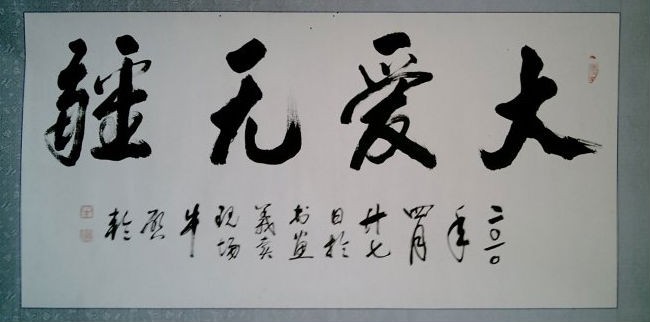 大爱无疆
二〇一〇年四月廿七日于书画义卖现场牛